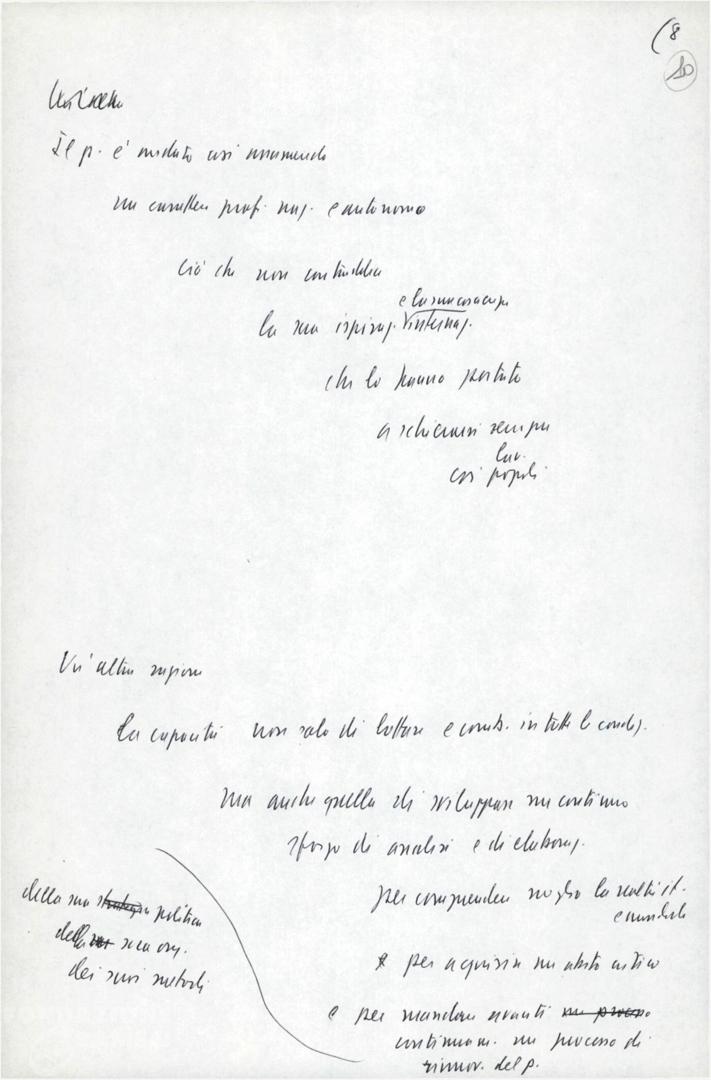 (8
10
Il p. è andato così assumendo
un carattere prof. naz. e autonomo
Ciò che non contraddice
e la sua
la sua ispiraz. internaz.
che lo hanno portato
a schierarsi sempre
lav.
coi popoli
Un'altra ragione
la capacità non solo di lottare e comb. in tutte le condiz.
ma anche quella di sviluppare un continuo
sforzo di analisi e di elaboraz.
per comprendere meglio la realtà it.
e mondiale
per acquisire un
e per mandare avanti un processo
continuam. un processo di
rinnov. del p.
della sua strategia politica
della sua org.
dei suoi metodi